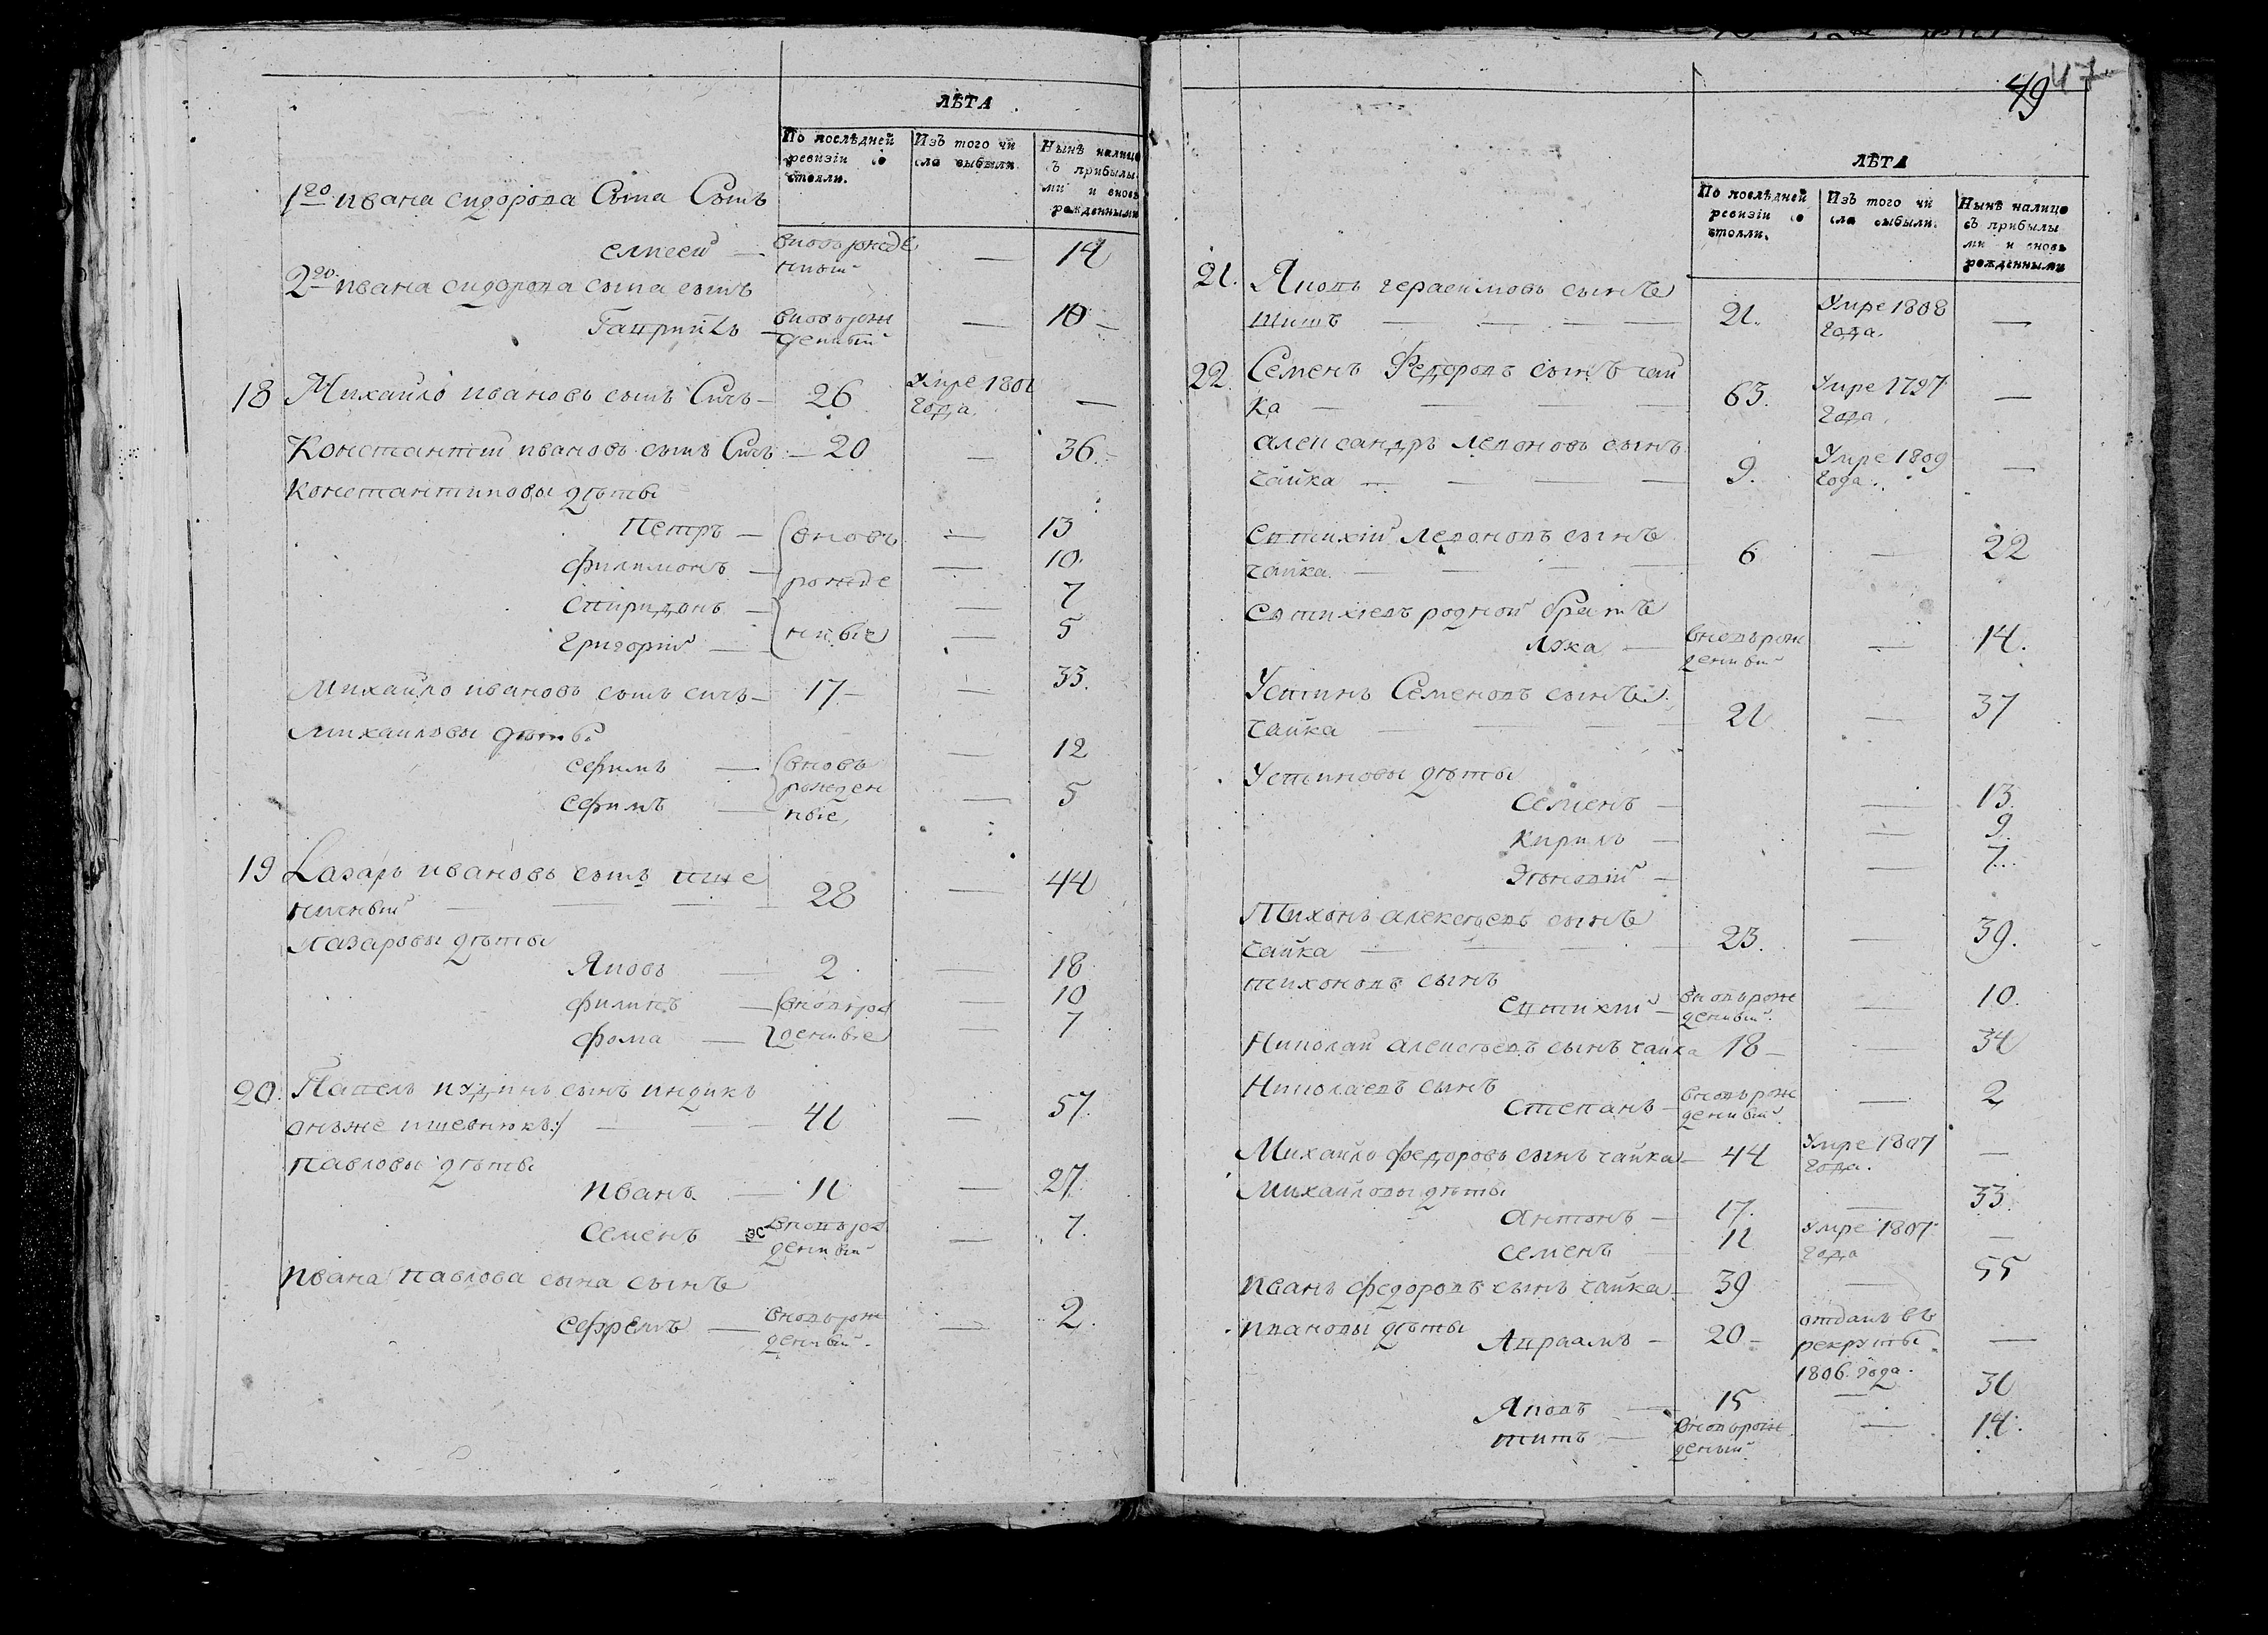 ЛѢТА
По послѣдней ревизіи со стояли.
Изъ того чи сла выбыли
Нынѣ налицо съ прибылы ми и вновь рожденными
1го ивана сидорова Сына Сынъ
елисей — вновь рожде нный — 14
2го ивана сидорова сына сынъ
Гаврийлъ — вновь рож денный — 10
18 Михайло ивановъ сынъ Сичъ — 26 Умре 1801 года. —
Константій ивановъ сынъ Сичъ — 20 — 36.
Константиновы дѣты
Петръ — вновь — 13
филимонъ — — 10.
рожде
спиридонъ — — 7
григорій — нные — 5
Михайло ивановъ сынъ сичъ — 17 — 33.
Михайловы дѣты
ефимъ — вновь — 12
рожден
ефимъ — ные — 5
19 Лазарь ивановъ сынъ пше
ничный — 28 — 44
Лазаровы дѣты
Яковъ — 2. — 18
филипъ — вновь рож — 10
фома — денные — 7
20. Павелъ сынъ индикъ
онъже 41 — 57
Павловы дѣты
иванъ — 11 — 27
Семенъ вновь рож денный — 7.
ивана павлова сына сынъ
ефремъ — вновь рож денный — 2.
49 47
ЛѢТА
По послѣдней ревизіи со стояли.
Изъ того чи сла выбыли.
Нынѣ налицо съ прибылы ми и вновь рожденными
21. Яковъ герасимовъ сынъ
Шишъ — 21. Умре 1808 года. —
22. Семенъ Федоровъ сынъ чай
ка — 63. Умре 1797 года. —
александръ левоновъ сынъ
чайка — 9. Умре 1809 года. —
евтихій левоновъ сынъ
чайка — 6 — 22
евтихіевъ родной братъ
Лука — вновь рож денный — 14.
Устинъ Семеновъ сынъ
чайка — 21 — 37
Устиновы дѣты
Семенъ — — 13.
Кирилъ — — 9.
— — 7.
Тихонъ алексѣевъ сынъ
чайка — 23. — 39.
тихоновъ сынъ
евтихій — вновь рож денный — 10.
Николай алексѣевъ сынъ чайка 18 — 34
Николаевъ сынъ
Степанъ — вновь рож денный — 2
Михайло федоровъ сынъ чайка — 44 Умре 1807 года. —
Михайловы дѣты
антонъ — 17. — 33.
семенъ 11 умре 1807 года —
иванъ федоровъ сынъ чайка — 39 — 55
ивановы дѣты
Авраамъ — 20 — отданъ въ рекруты 1806 года. —
Яковъ — 15 — 31
титъ — вновь рож деный — 14.